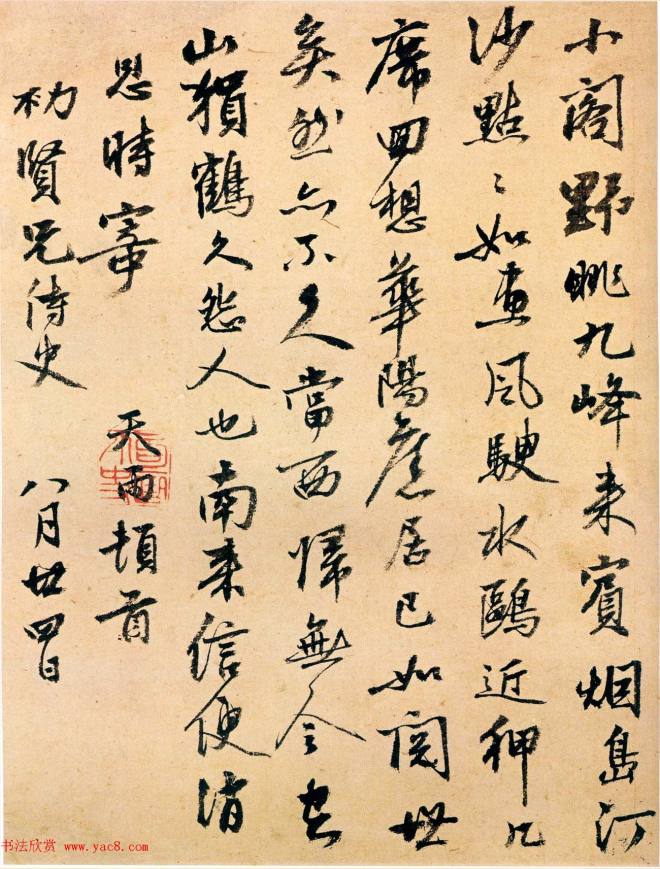 小阁野眺九峰来賓烟島汀
沙點〻如畫風駛水鷗近狎几
席回想華陽舊居已如閱世
矣然亦不久當西歸無令空
山猨鶴久怨人也南来信便惟
思時寧 天雨頓首
初賢兄侍史 八月廿四日
书法欣赏 www.yac8.com